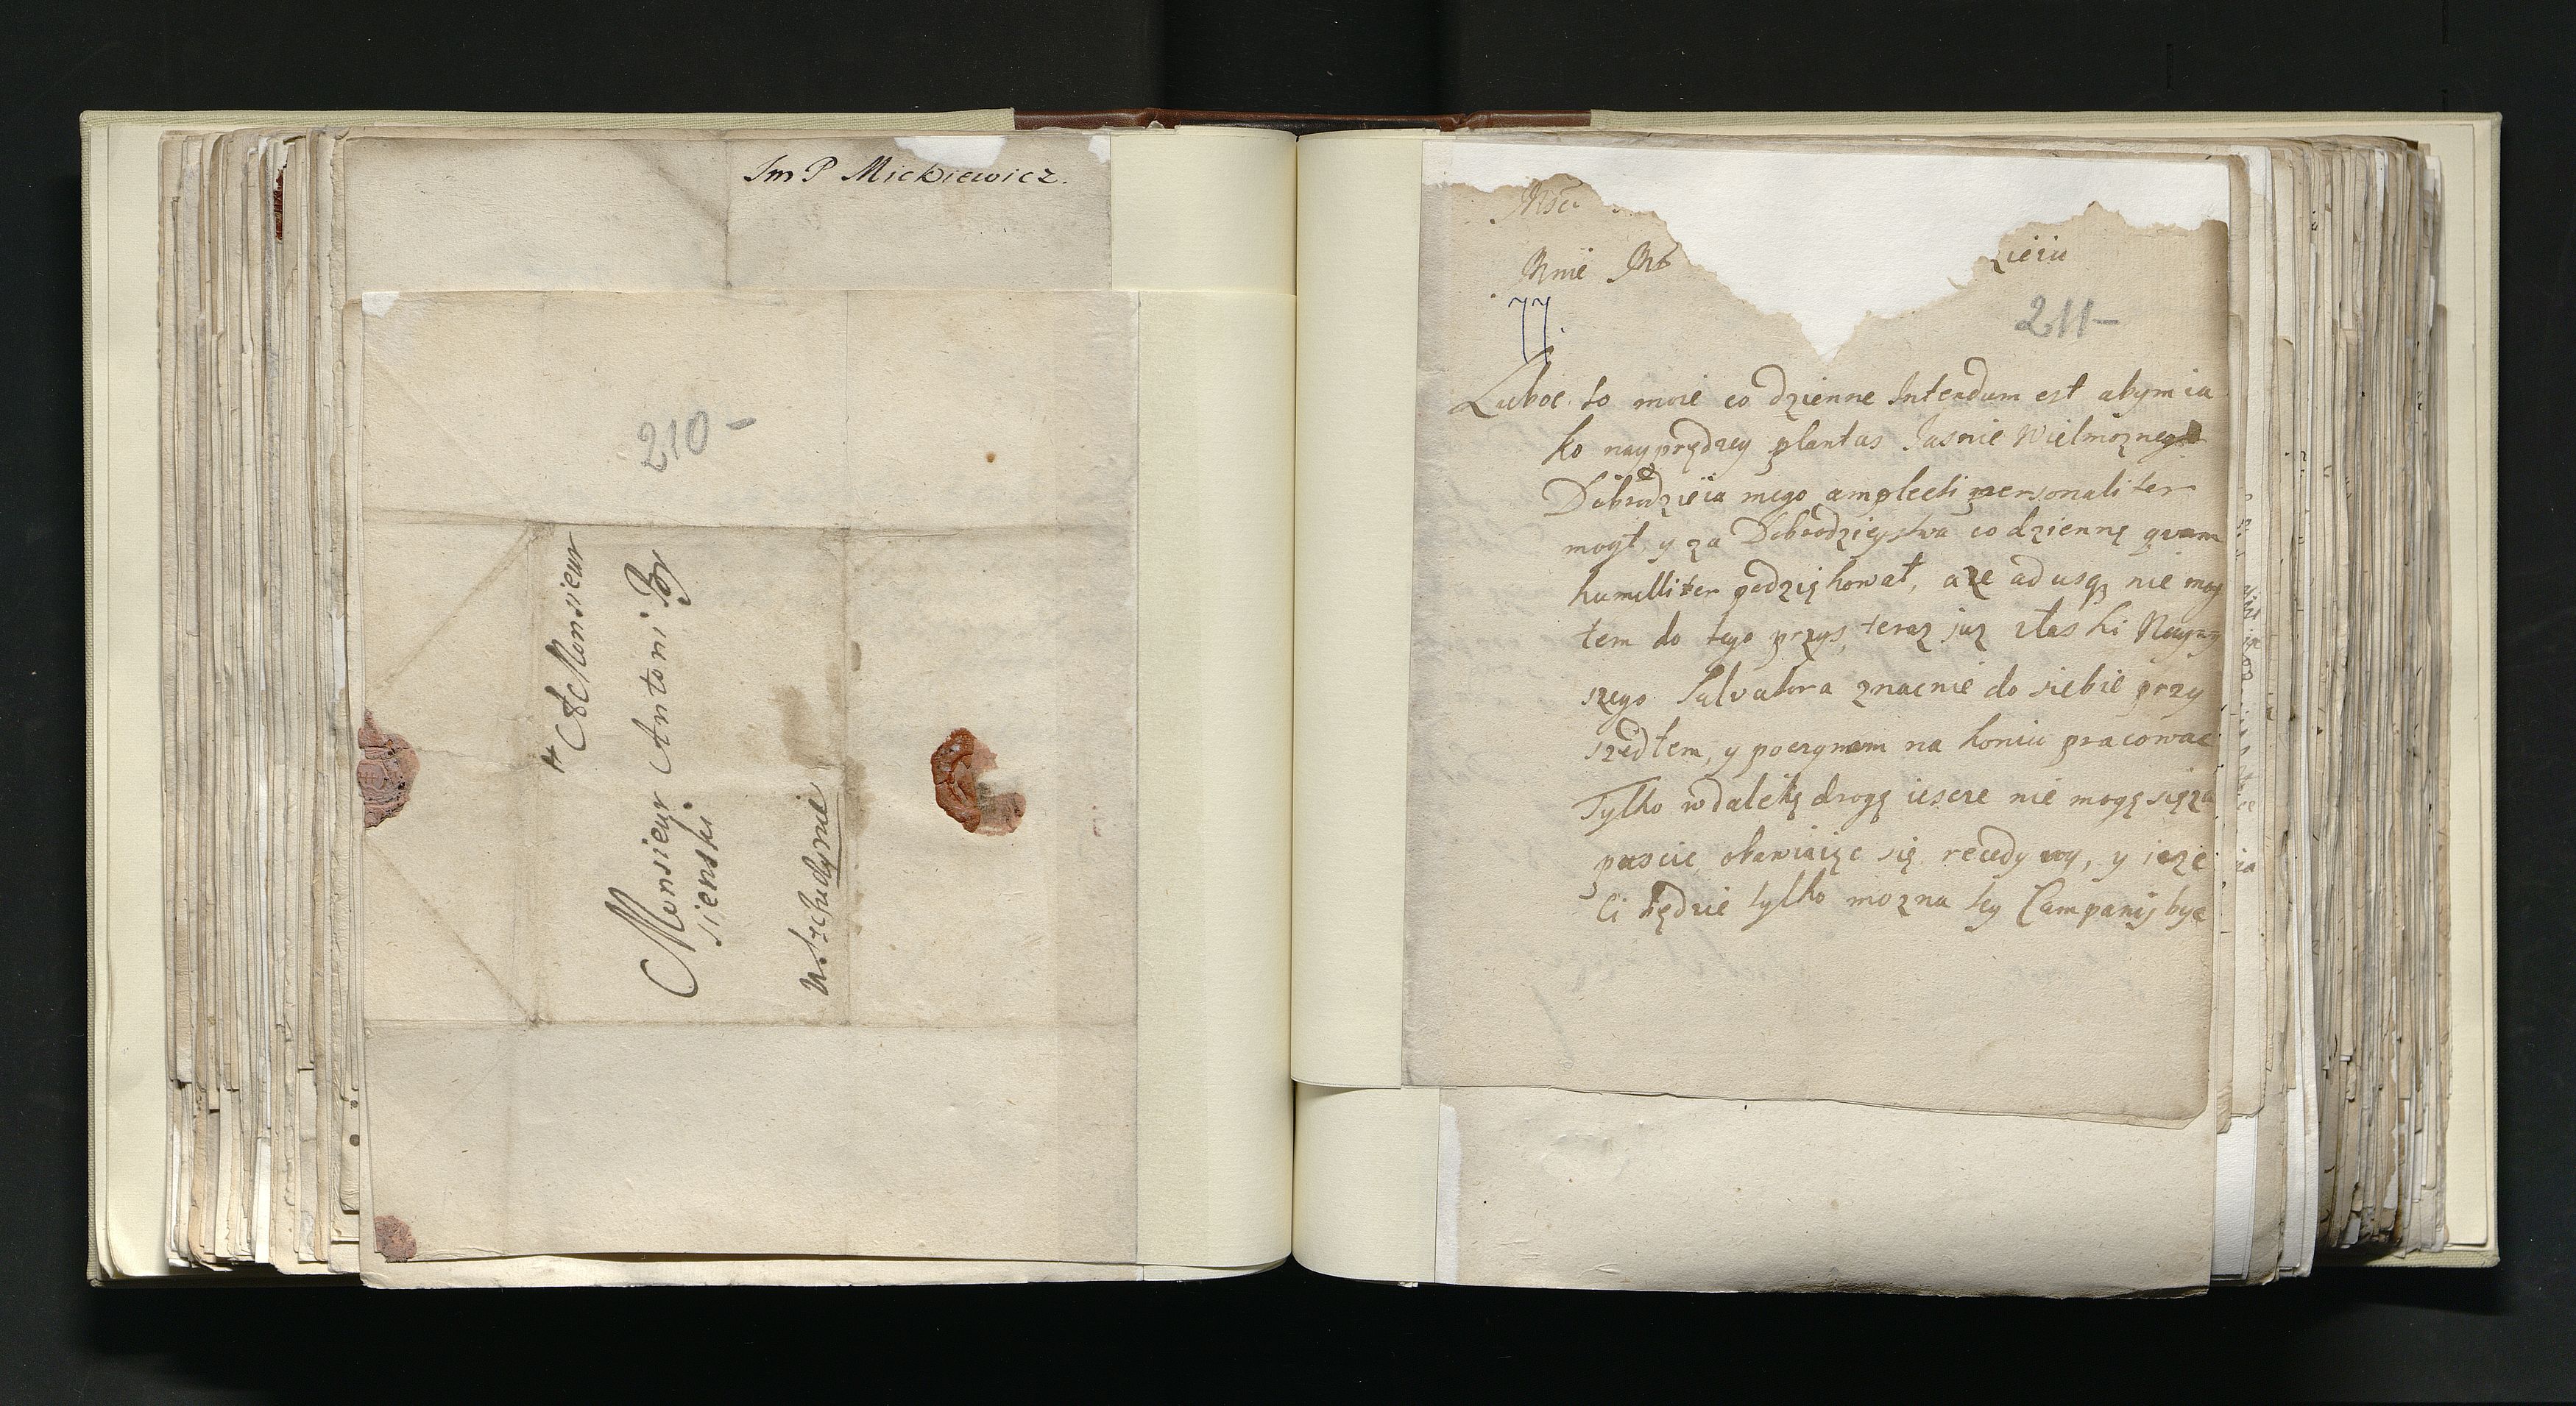 Im P Mickiewicz.
210-
A Monsieur
Monsieur Antoni Po
sienski
w Szchudynie
Msci
Mnie Mo zieiu
77.
211-
Luboc to moie co dzienne Intendum est abym ia
ko nayprędzey plantas Jasnie Wielmoznego
Dobrodzieia mego amplecti personaliter
mogł, y za Dobrodzieystwa co dzienne qvam
humilliter podziękował, aże ad usqꝫ nie mog
łem do tego przys, teraz juz złaski Nayzy
szego Salvatora znacnie do siebie przy
szedłem, y poczynam na koniu pracowac
Tylko wdaleką drogę iescze nie mogę się za
puscic obawiaięc się recedywy, y ieze
li będzie tylko mozna tey Campanij byc